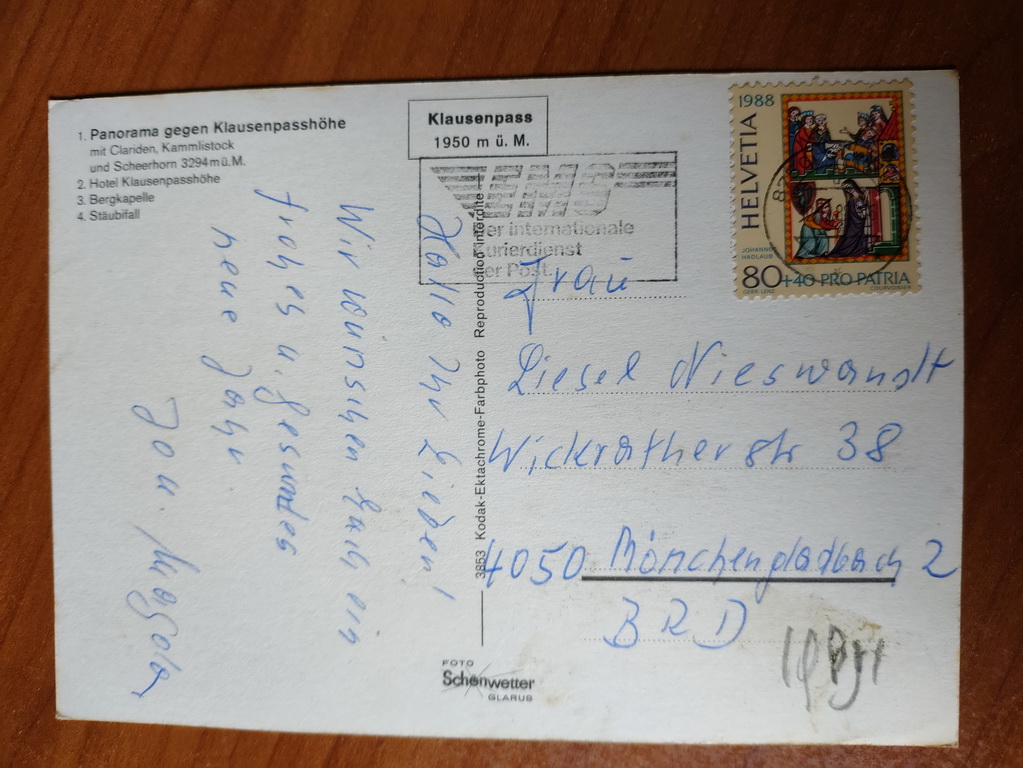 1. Panorama gegen Klausenpasshöhe
mit Clariden, Kammlistock
und Scheerhorn 3294 m ü. M.
2. Hotel Klausenpasshöhe
3. Bergkapelle
4. Stäubifall
Klausenpass
1950 m ü. M.
EMS
Der internationale
Kurierdienst
der Post.
1988
HELVETIA
JOHANNES
HADLAUB
80+40 PRO PATRIA
COURVOISIER
Hallo Ihr Lieben!
Wir wünschen Euch ein
frohes u. gesundes
neue Jahr
3853 Kodak-Ektachrome-Farbphoto Reproduction interdite
Frau
Liesel Nieswandt
Wickratherstr 38
4050 Mönchengladbach 2
BRD
FOTO
Schönwetter
GLARUS